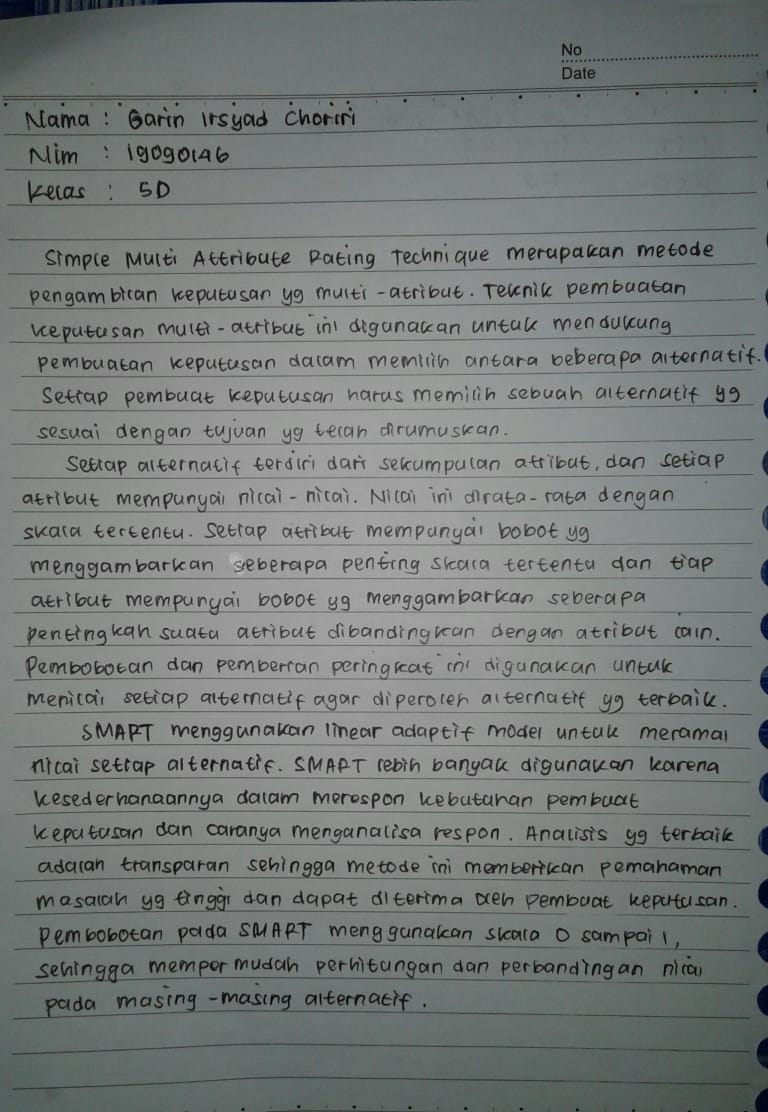 No
Date
Nama : Garin Irsyad Choiriri
Nim : 19090146
Kelas : 5D
Simple Multi Attribute Rating Technique merupakan metode
pengambilan keputusan yg multi-atribut. Teknik pembuatan
keputusan multi-atribut ini digunakan untuk mendukung
pembuatan keputusan dalam memilih antara beberapa alternatif.
Setiap pembuat keputusan harus memilih sebuah alternatif yg
sesuai dengan tujuan yg telah dirumuskan.
Setiap alternatif terdiri dari sekumpulan atribut, dan setiap
atribut mempunyai nilai-nilai. Nilai ini dirata-rata dengan
skala tertentu. Setiap atribut mempunyai bobot yg
menggambarkan seberapa penting skala tertentu dan tiap
atribut mempunyai bobot yg menggambarkan seberapa
pentingkah suatu atribut dibandingkan dengan atribut lain.
Pembobotan dan pemberian peringkat ini digunakan untuk
menilai setiap alternatif agar diperoleh alternatif yg terbaik.
SMART menggunakan linear adaptif model untuk meramal
nilai setiap alternatif. SMART lebih banyak digunakan karena
kesederhanaannya dalam merespon kebutuhan pembuat
keputusan dan caranya menganalisa respon. Analisis yg terbaik
adalah transparan sehingga metode ini memberikan pemahaman
masalah yg tinggi dan dapat diterima oleh pembuat keputusan.
Pembobotan pada SMART menggunakan skala 0 sampai 1,
sehingga mempermudah perhitungan dan perbandingan nilai
pada masing-masing alternatif.